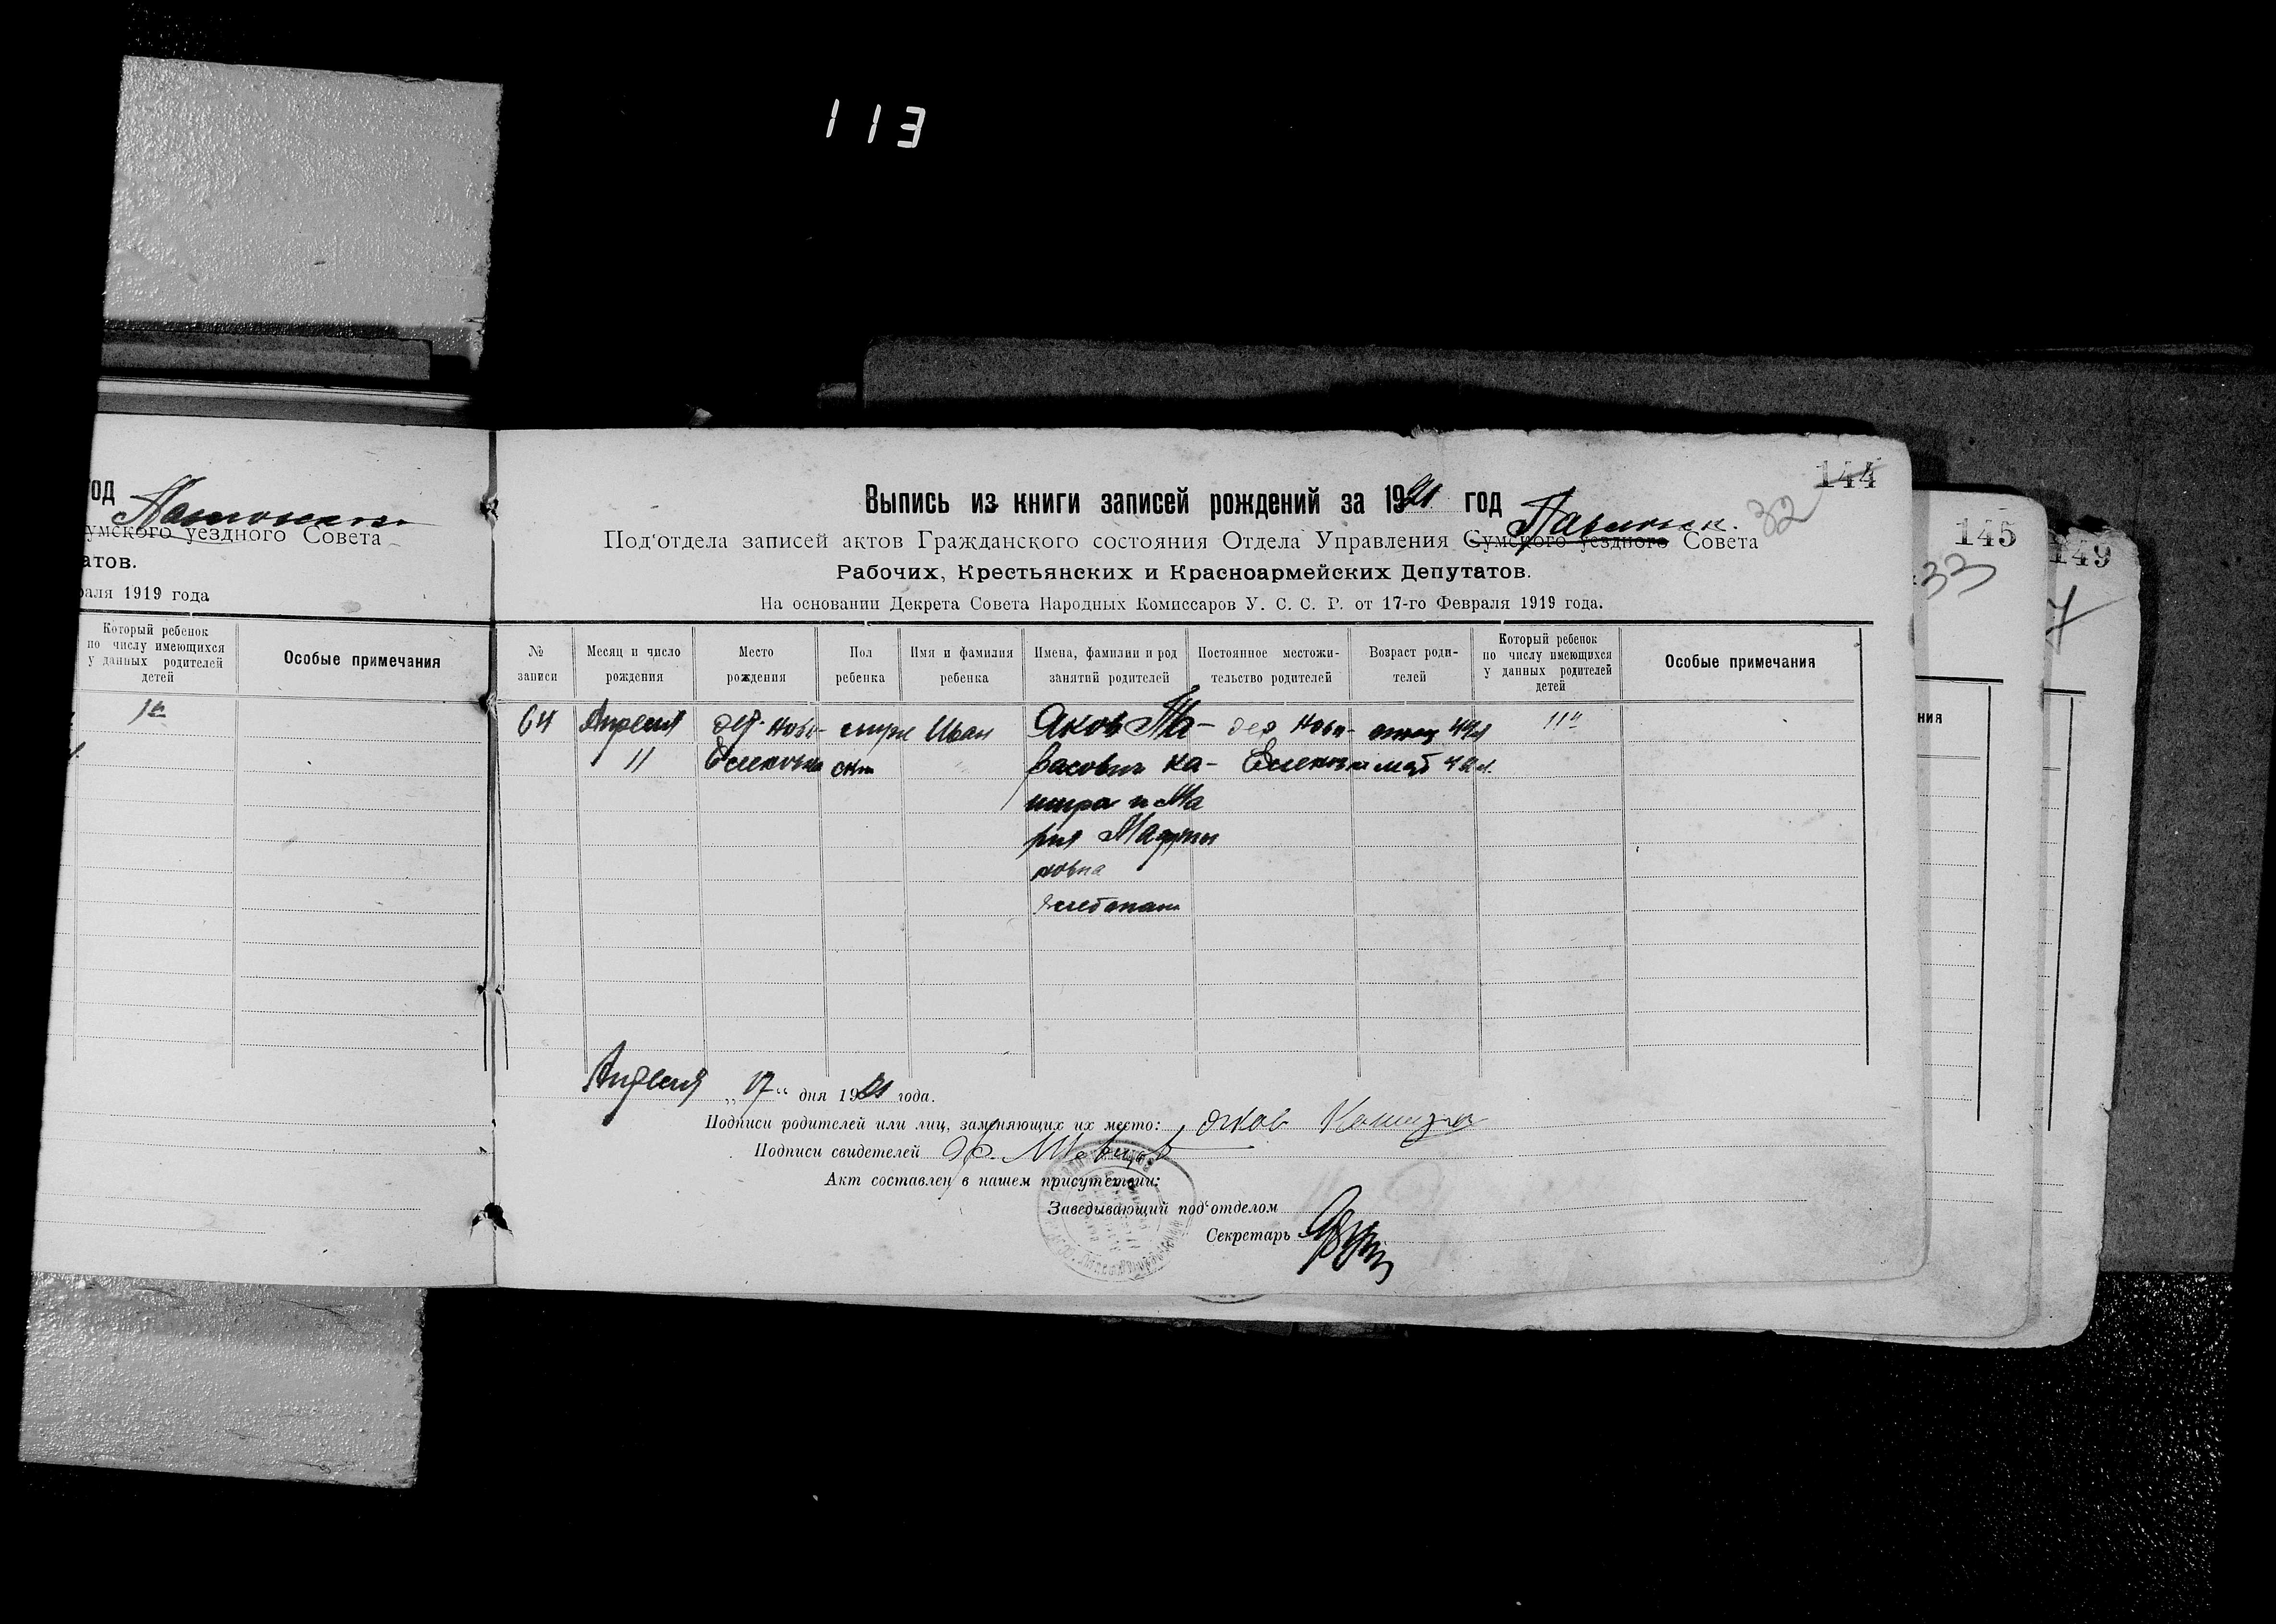 113
144
32
145
33
149
7
од
умского уездного Совета
атов.
раля 1919 года
Который ребенок
по числу имеющихся
у данных родителей
детей
Особые примечания
Выпись из книги записей рождений за 1921 год
Под'отдела записей актов Гражданского состояния Отдела Управления Сумского уездного Совета
Рабочих, Крестьянских и Красноармейских Депутатов.
На основании Декрета Совета Народных Комиссаров У. С. С. Р. от 17-го Февраля 1919 года.
№ записи
Месяц и число рождения
Место рождения
Пол ребенка
Имя и фамилия ребенка
Имена, фамилии и род занятий родителей
Постоянное местожи- тельство родителей
Возраст роди- телей
Который ребенок по числу имеющихся у данных родителей детей
Особые примечания
ния
64 Апреля Ново- муже Иван Яков Та- Ново- отец
11 ской расович Ка-
шира и Ма
рия Марты
новна
хлебопаш
Апреля „17“ дня 1921 года.
Подписи родителей или лиц, заменяющих их место: Яков Кашира
Подписи свидетелей
Акт составлен в нашем присутствии:
Заведывающий под'отделом
Секретарь